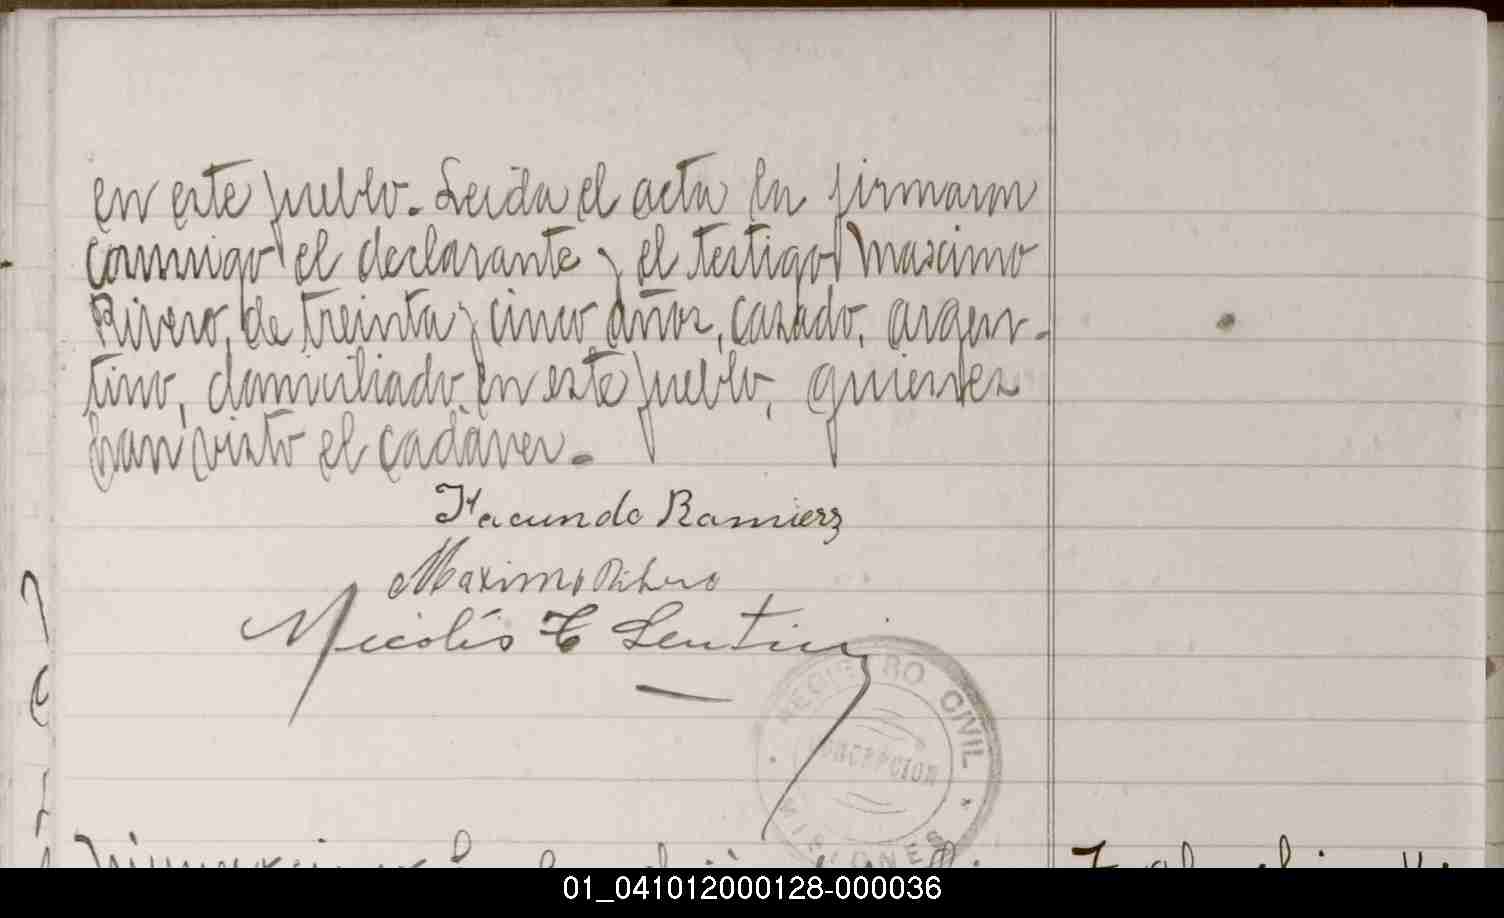 en este pueblo. Leida el acta la firmaron
conmigo el declarante y el testigo Maximo
Rivero, de treinta y cinco años, casado, argen-
tino, domiciliado en este pueblo, quienes
han visto el cadáver.-
Facundo Ramierz
Maximo Ribero
Nicolás
REGISTRO CIVIL
CONCEPCION
MISIONES
01_041012000128-000036